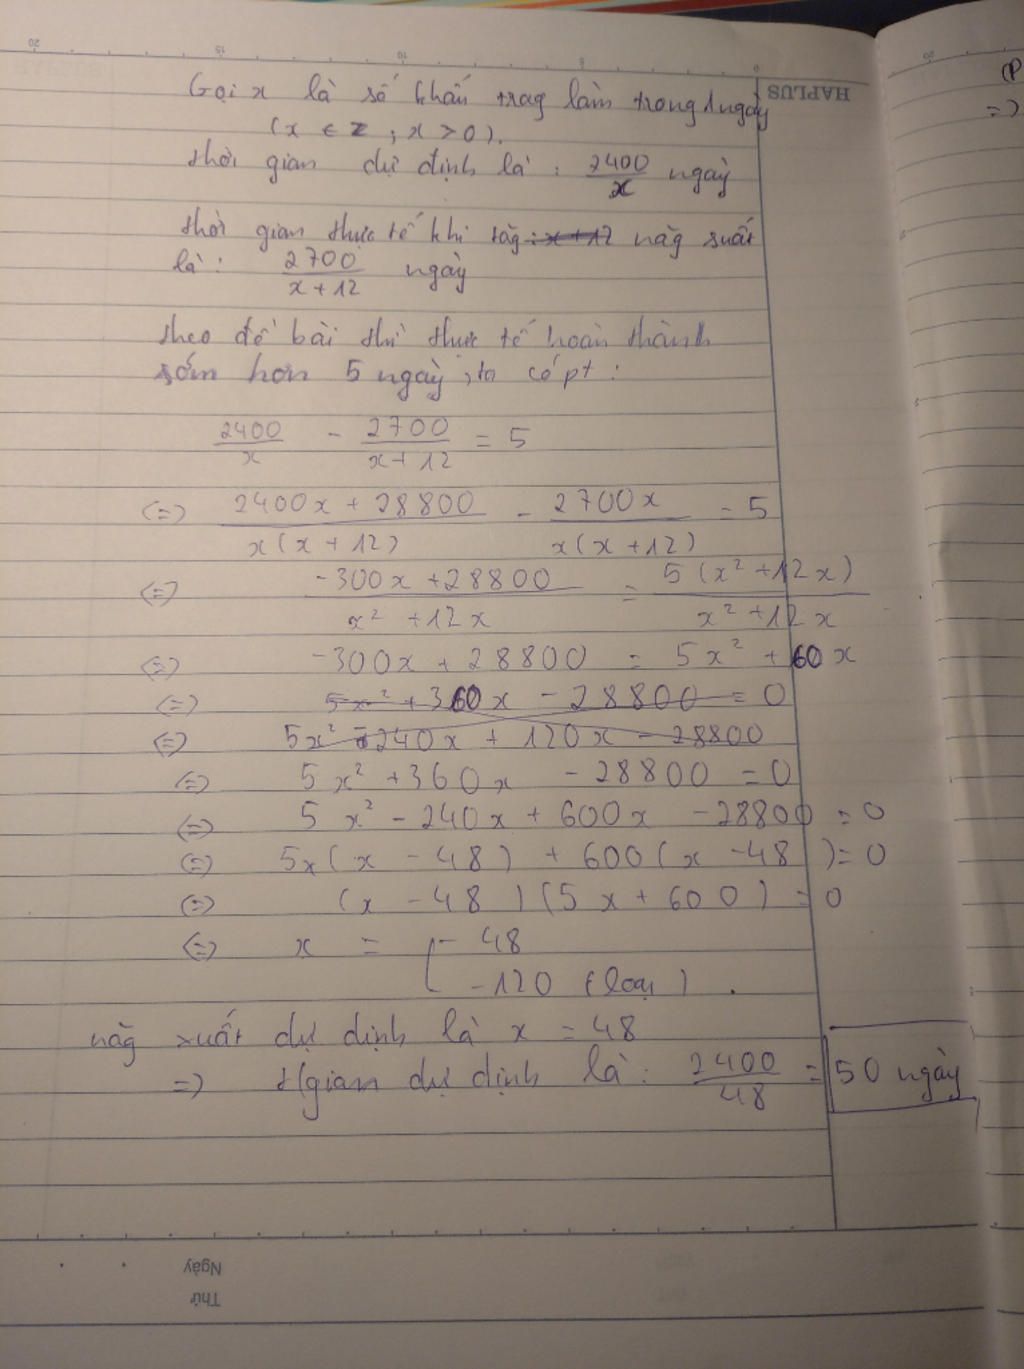 HAPLUS
Gọi x là số khẩu trag làm trong 1 ngày
(x ∈ Z ; x > 0).
thời gian dự định là : 2400/x ngày
thời gian thực tế khi tăg : x+12 năg suất
là : 2700/(x+12) ngày
theo đề bài thì thực tế hoàn thành
sớm hơn 5 ngày, ta có pt :
2400/x - 2700/(x+12) = 5
(=) (2400x + 28800)/(x(x+12)) - 2700x/(x(x+12)) = 5
(=) (-300x + 28800)/(x² + 12x) = 5(x² + 12x)/(x² + 12x)
(=) -300x + 28800 = 5x² + 60x
(=) 5x² + 360x - 28800 = 0
(=) 5x² - 240x + 120x - 28800
(=) 5x² + 360x - 28800 = 0
(=) 5x² - 240x + 600x - 28800 = 0
(=) 5x(x - 48) + 600(x - 48) = 0
(=) (x - 48)(5x + 600) = 0
(=) x = [ 48
-120 (loại).
năg xuất dự định là x = 48
=) t/gian dự định là : 2400/48 = 50 ngày
Ngày
Thứ
(P
=)